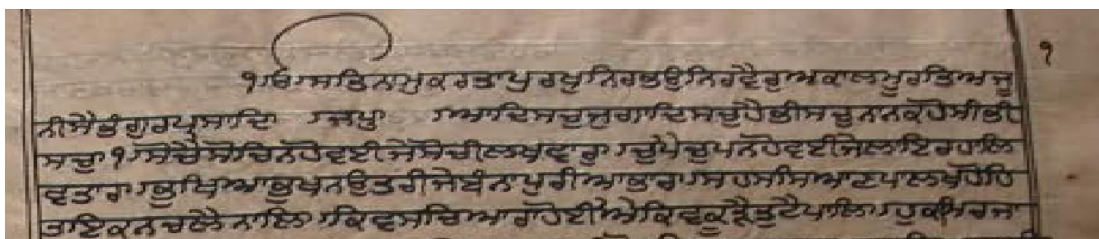 ੧
੧ਓ ਸਤਿਨਾਮੁਕਰਤਾਪੁਰਖੁਨਿਰਭਉਨਿਰਵੈਰੁਅਕਾਲਮੂਰਤਿਅਜੂ
ਨੀਸੈਭੰਗੁਰਪ੍ਰਸਾਦਿ ॥ਜਪੁ ॥ਆਦਿਸਚੁਜੁਗਾਦਿਸਚੁਹੈਭੀਸਚੁਨਾਨਕਹੋਸੀਭੀ
ਸਚੁ੧ਸੋਚੈਸੋਚਿਨਹੋਵਈਜੇਸੋਚੀਲਖਵਾਰਾ।ਚੁਪੈਚੁਪਨਹੋਵਈਜੇਲਾਇਰਹਾਲਿ
ਵਤਾਰਾ।ਭੁਖਿਆਭੁਖਨਉਤਰੀਜੇਬੰਨਾਪੁਰੀਆਭਾਰਾ।ਸਹਸਸਿਆਣਪਾਲਖਹੋਹਿ
ਤਾਇਕਨਚਲੈਨਾਲਿ।ਕਿਵਸਚਿਆਰਾਹੋਈਐਕਿਵਕੂੜੈਤੁਟੈਪਾਲਿ।ਹੁਕਮਿਰਜਾ